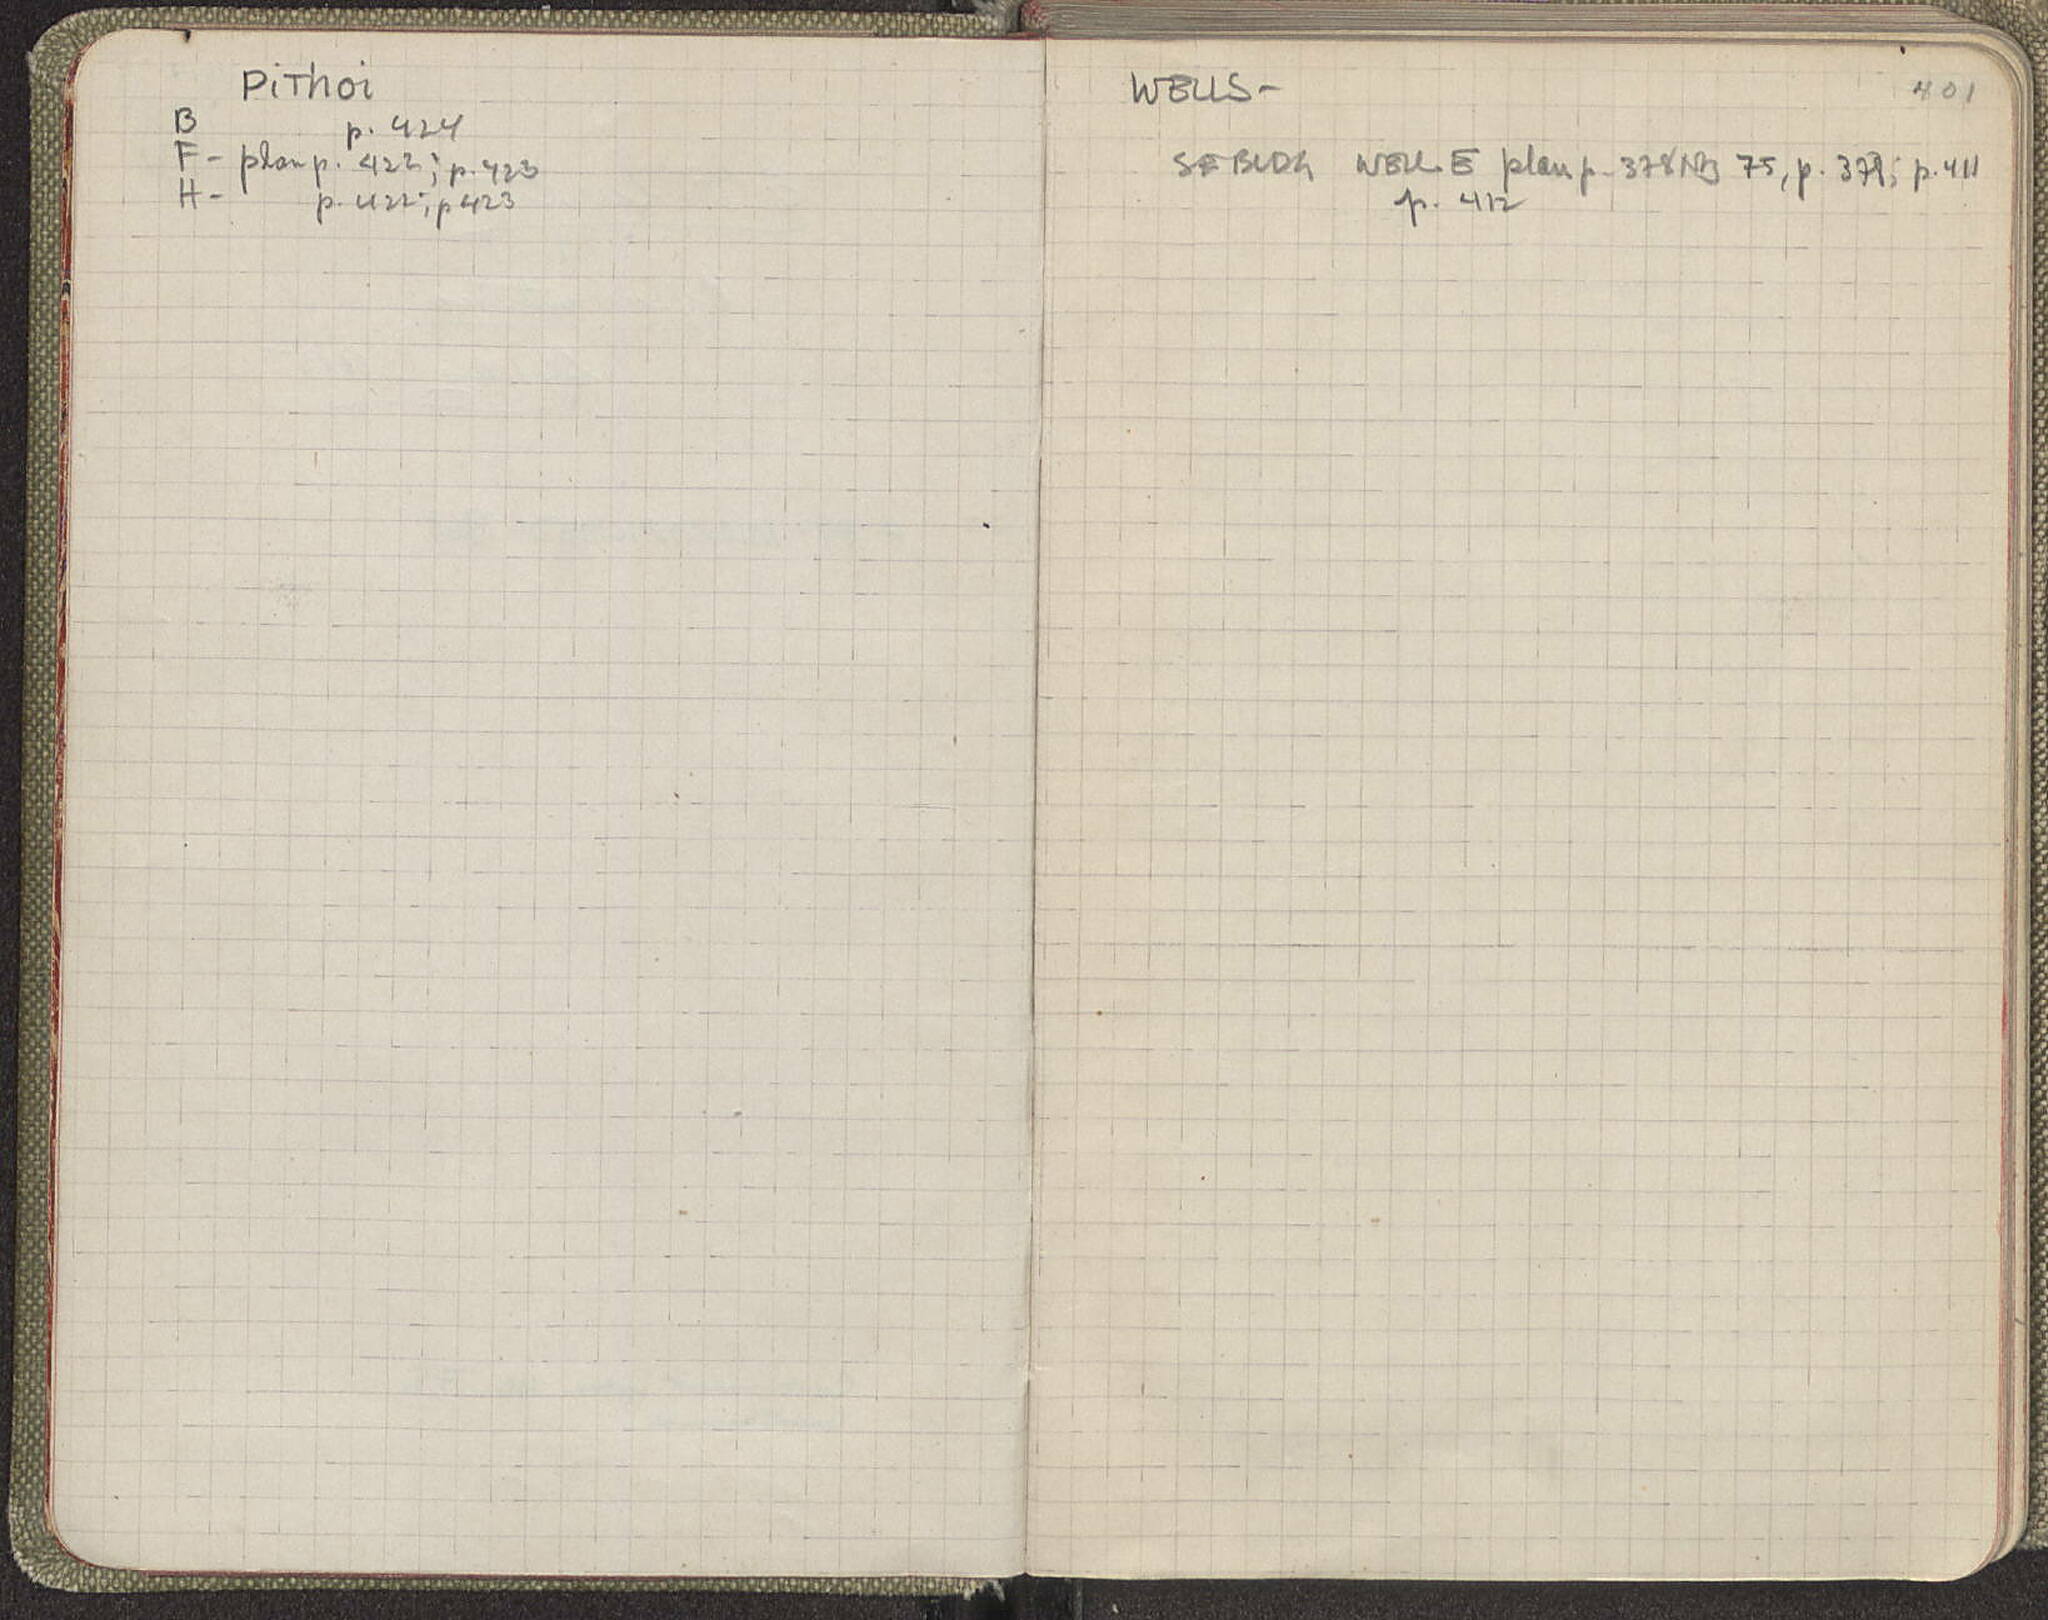 PiThoi
B p. 424
F - plan p. 422; p. 423
H - p. 422; p 423
401
WELLS -
SE BLDG WELL E plan p. 378 NB 75, p. 379; p. 411
p. 412